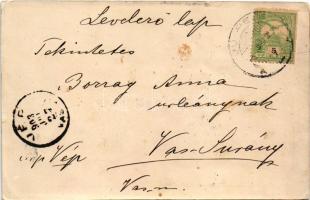 Levelező lap
Tekintetes
Borray Anna
urleánynak
Vép
Vas-Surány
Vas m.
5